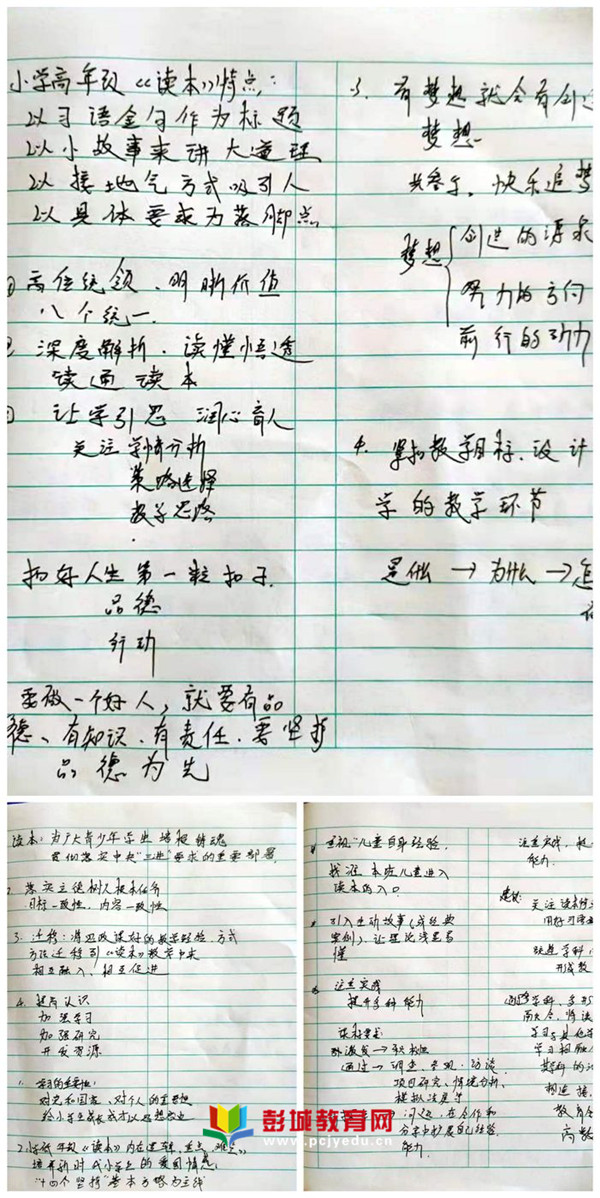 小学高年级《读本》特点:
以习语金句作为标题
以小故事来讲大道理
以接地气方式吸引人
以具体要求为落脚点
高位统领、明晰价值
八个统一.
深度解析.读懂悟透
读通读本
让学引思 润心育人
关注学情分析
策略选择
教学思路
扣好人生第一粒扣子.
品德
行动
要做一个好人,就要有品
德、有知识、有责任.要坚持
品德为先
3. 有梦想就会有创造
梦想.
快乐追梦
梦想
创造的源泉
努力的方向
前行的动力
4. 紧扣教学目标.设计
学的教学环节
是什么→为什么→怎
读本:为广大青少年学生培根铸魂
贯彻落实中央"三进"要求的重要部署
2. 落实立德树人根本任务
目标一致性,内容一致性
3. 迁移:将思政课好的教学经验、方式
方法迁移到《读本》教学中来
相互融入,相互促进
4. 提高认识
加强学习
加强研究
开发资源
1. 学习的重要性:
对党和国家、对个人的重要性
给小学生成长成才以思想
2. 小学低年级《读本》内在逻辑、重点、难点
培养新时代小学生的爱国情感
"十四个坚持"基本方略为主线
重视"儿童自身经验,
找准本班儿童进入
读本的入口
引入生动故事(或经典
案例),让理论浅显易
懂
注重实践
提升多种能力
通过→调查、参观、访谈
项目研究、情境分析、
模拟法庭等
问题,在合作和
分享中扩展自己经验.
能力.
注重实践,提
能力.
建议:
关注读本
跨进学科
彭城教育网
www.pcjyedu.cn